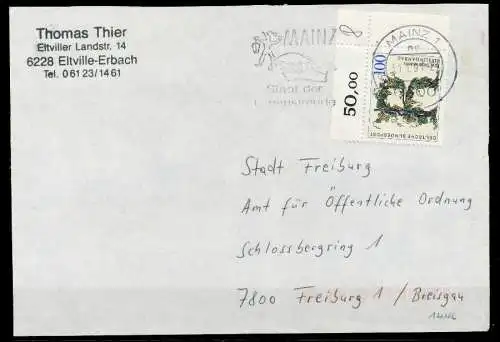 Thomas Thier
Eltviller Landstr. 14
6228 Eltville-Erbach
Tel. 0 61 23/14 61
MAINZ
MAINZ 1
Stadt der
50,00
100
DEUTSCHE BUNDESPOST
Stadt Freiburg
Amt für Öffentliche Ordnung
Schlossbergring 1
7800 Freiburg 1 / Breisgau